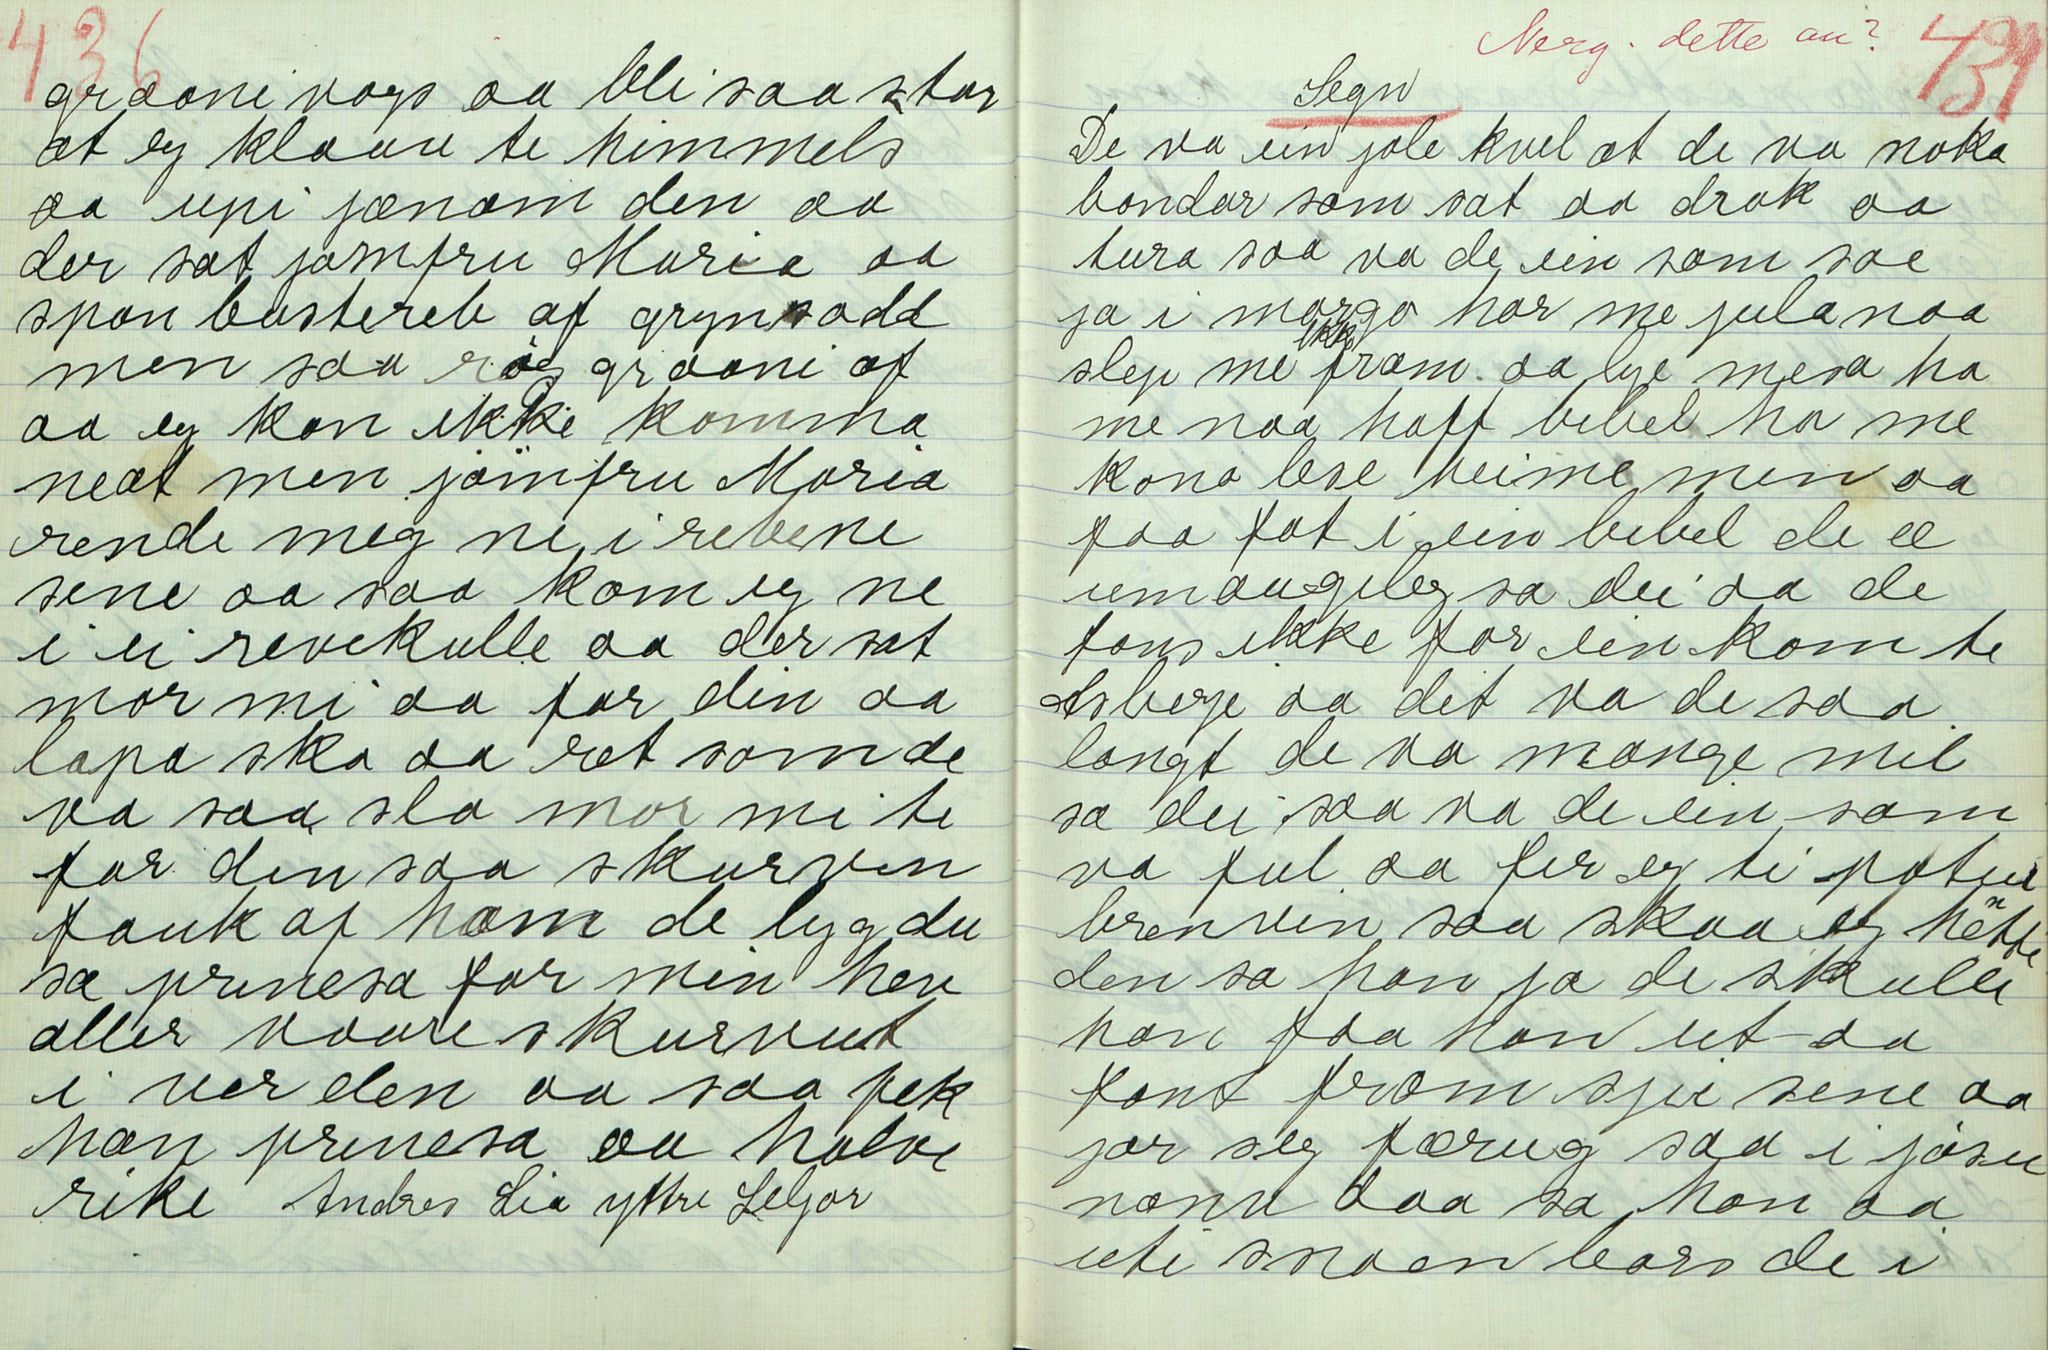 436
graani vogs aa bli saa stor
at eg klaav te himmels
aa upi jænom den aa
der sat jomfru Maria aa
span bustereb af grynsodd
men saa røg graani af
aa eg kon ikke komma
neat men jomfru Maria
rende meg ne i rebene
sene aa saa kom eg ne
i ei revekulle aa der sat
mor mi aa far din aa
lapa ska aa ret som de
va saa slo mor mi te
far din saa skurven
fauk af hom de lyg du
sa prinesa far min here
aller vaare skurvut
i verden aa saa fek
han prinesa aa halve
rike Andres Lia yttre Seljor
Nerg. dette au?
437
Segn
De va ein jole kvel at de va noka
bondar som sat aa drak aa
tura saa va de ein som sae
ja i morgo har me jula naa
slep me ikke fram aa lye mesa ha
me naa haff bibel ha me
kona lese heime men aa
faa fat i ein bibel de æ
umaugeleg sa dei aa de
fans ikke for ein kom te
Asberje aa dit va de saa
langt de va mange mil
sa dei saa va de ein som
va ful aa fer eg ti potue
brenvin saa skaa eg hëtte
den sa han ja de skulle
han faa han ut aa
fant fram sjie sene aa
jor seg færug saa i jøsu
namn daa sa han aa
uti snoen bars de i